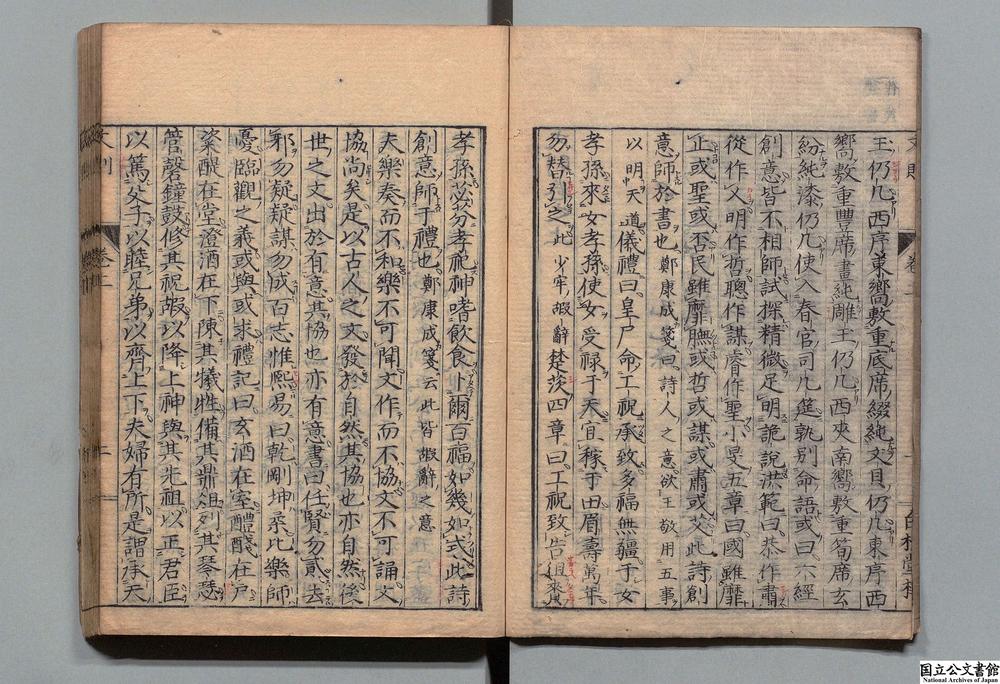 玉仍几西序東嚮敷重底席綴純文貝仍几東序西
嚮敷重豐席畫純雕玉仍几西夾南嚮敷重筍席玄
紛純漆仍几使入春官司几筵孰別命語或曰六經
創意皆不相師試探精微足明詭說洪範曰恭作肅
從作乂明作哲聰作謀睿作聖小旻五章曰國雖靡
止或聖或否民雖靡膴或哲或謀或肅或艾此詩創
意師於書也鄭康成箋曰詩人之意欲王敬用五事
以明天道儀禮曰皇尸命工祝承致多福無疆于女
孝孫來女孝孫使女受祿于天宜稼于田眉壽萬年
勿替引之此少牢嘏辭楚茨四章曰工祝致告徂賚
孝孫苾芬孝祀神嗜飲食卜爾百福如幾如式此詩
創意師于禮也鄭康成箋云此皆嘏辭之意
夫樂奏而不和樂不可聞文作而不協文不可誦文
協尚矣是以古人之文發於自然其協也亦自然後
世之文出於有意其協也亦有意書曰任賢勿貳去
邪勿疑疑謀勿成百志惟熙易曰乾剛坤柔比樂師
憂臨觀之義或與或求禮記曰玄酒在室醴醆在戶
粢醍在堂澄酒在下陳其犧牲備其鼎俎列其琴瑟
管磬鐘鼓修其祝嘏以降上神與其先祖以正君臣
以篤父子以睦兄弟以齊上下夫婦有所是謂承天
文則 卷上
國立公文書館
National Archives of Japan